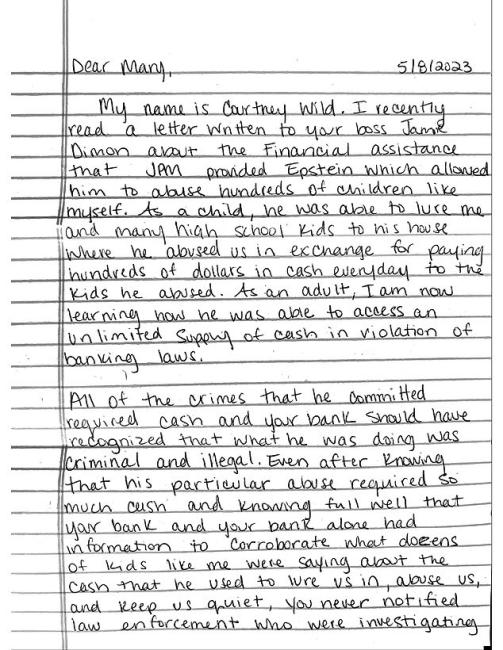 Dear Mary, 5/8/2023
My name is Courtney Wild. I recently
read a letter written to your boss Jamie
Dimon about the Financial assistance
that JPM provided Epstein which allowed
him to abuse hundreds of children like
myself. As a child, he was able to lure me
and many high school kids to his house
where he abused us in exchange for paying
hundreds of dollars in cash everyday to the
kids he abused. As an adult, I am now
learning how he was able to access an
unlimited supply of cash in violation of
banking laws.
All of the crimes that he committed
required cash and your bank should have
recognized that what he was doing was
criminal and illegal. Even after knowing
that his particular abuse required so
much cash and knowing full well that
your bank and your bank alone had
information to corroborate what dozens
of kids like me were saying about the
cash that he used to lure us in, abuse us,
and keep us quiet, you never notified
law enforcement who were investigating